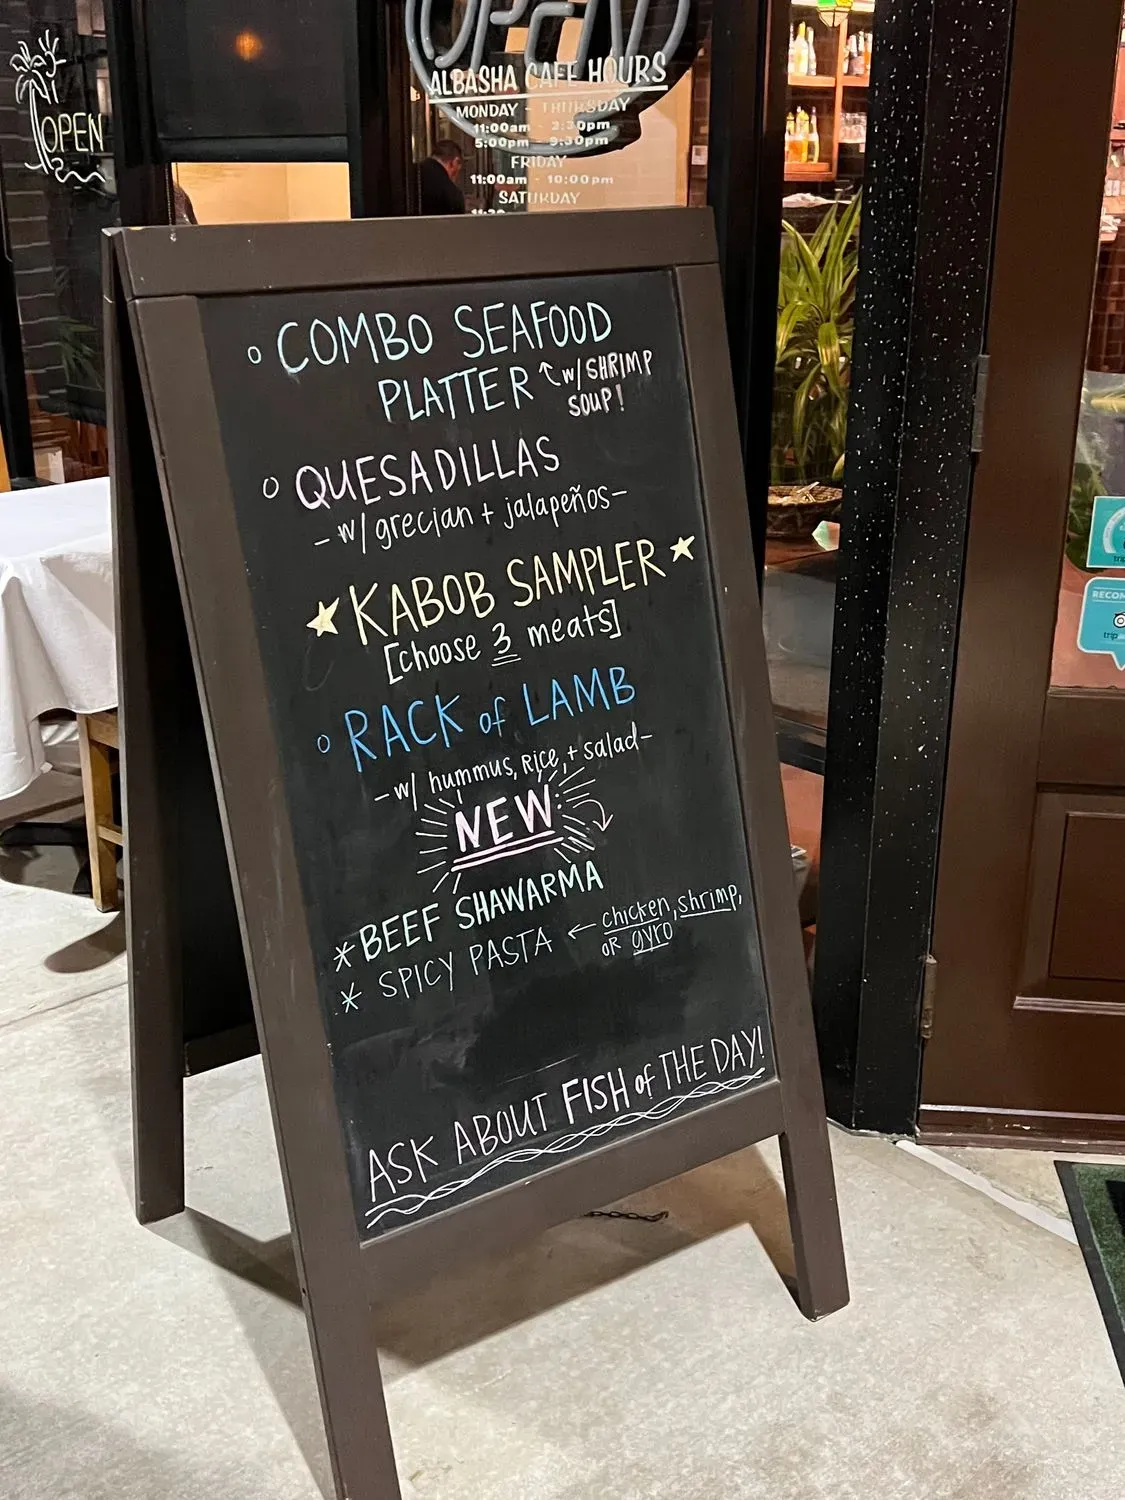 OPEN
OPEN
ALBASHA CAFE HOURS
MONDAY - THURSDAY
11:00am - 2:30pm
5:00pm - 9:30pm
FRIDAY
11:00am - 10:00pm
SATURDAY
COMBO SEAFOOD
PLATTER w/ SHRIMP
SOUP!
QUESADILLAS
- w/ grecian + jalapeños -
KABOB SAMPLER
[choose 3 meats]
RACK of LAMB
- w/ hummus, RICE, + salad -
NEW
* BEEF SHAWARMA
* SPICY PASTA ← chicken, shrimp,
OR gyro
ASK ABOUT FISH of THE DAY!